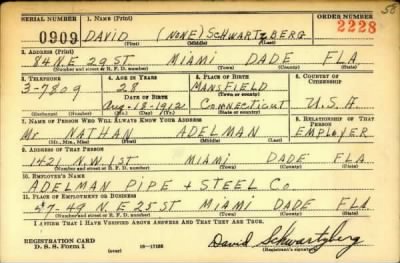 SERIAL NUMBER 1. NAME (Print) ORDER NUMBER
0909 DAVID (NONE) SCHWARTZBERG 2228
(First) (Middle) (Last)
2. ADDRESS (Print)
84 N.E 29 ST MIAMI DADE FLA
(Number and street or R. F. D. number) (Town) (County) (State)
3. TELEPHONE 4. AGE IN YEARS 5. PLACE OF BIRTH 6. COUNTRY OF CITIZENSHIP
3-7809 28 MANSFIELD
DATE OF BIRTH (Town or county)
Aug-18-1912 CONNECTICUT U.S.A
(Exchange) (Number) (Mo.) (Day) (Yr.) (State or country)
7. NAME OF PERSON WHO WILL ALWAYS KNOW YOUR ADDRESS 8. RELATIONSHIP OF THAT PERSON
Mr NATHAN ADELMAN EMPLOYER
(Mr., Mrs., Miss) (First) (Middle) (Last)
9. ADDRESS OF THAT PERSON
1421 N.W. 1ST MIAMI DADE FLA
(Number and street or R. F. D. number) (Town) (County) (State)
10. EMPLOYER'S NAME
ADELMAN PIPE + STEEL Co.
11. PLACE OF EMPLOYMENT OR BUSINESS
57-49 N.E 25 ST MIAMI DADE FLA
(Number and street or R. F. D. number) (Town) (County) (State)
I AFFIRM THAT I HAVE VERIFIED ABOVE ANSWERS AND THAT THEY ARE TRUE.
REGISTRATION CARD
D. S. S. Form 1 (over) 16-17105 David Schwartzberg
(Registrant's signature)